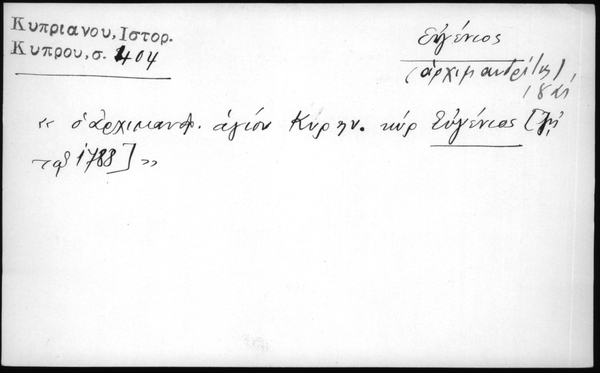 Κυπριανου, Ιστορ.
Κυπρου, σ. 404
Εὐγένιος
(ἀρχιμανδρίτης)
« ὁ ἀρχιμανδ. ἁγίου Κυρην. κύρ Εὐγένιος
τοῦ 1788] »